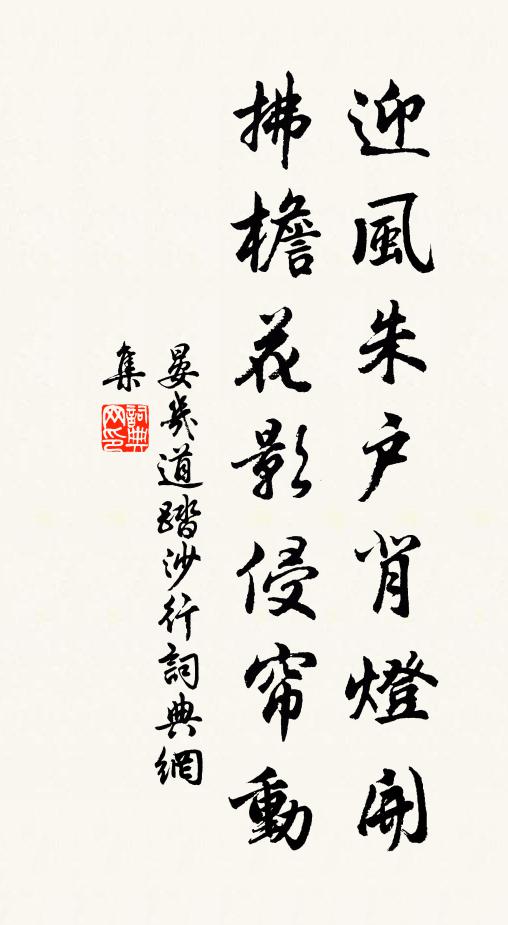 迎風朱户背燈開
拂檐花影侵帘動
晏幾道踏沙行詞典網
集
詞典网印